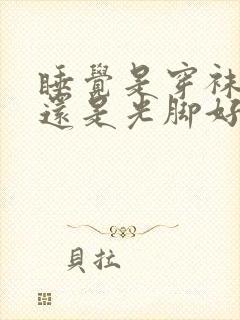 睡覺是穿襪
還是光脚好
貝拉